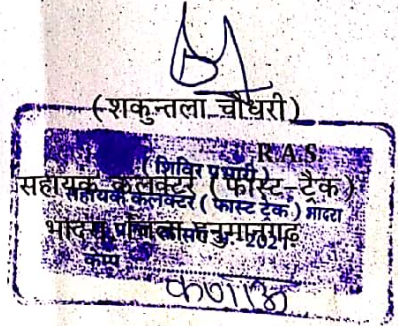 (शकुन्तला चौधरी)
R.A.S.
(शिविर प्रभारी)
सहायक कलक्टर (फास्ट-ट्रैक)
सहायक कलक्टर (फास्ट ट्रेक) भादरा
भादरा जिला हनुमानगढ़
2021
कैम्प